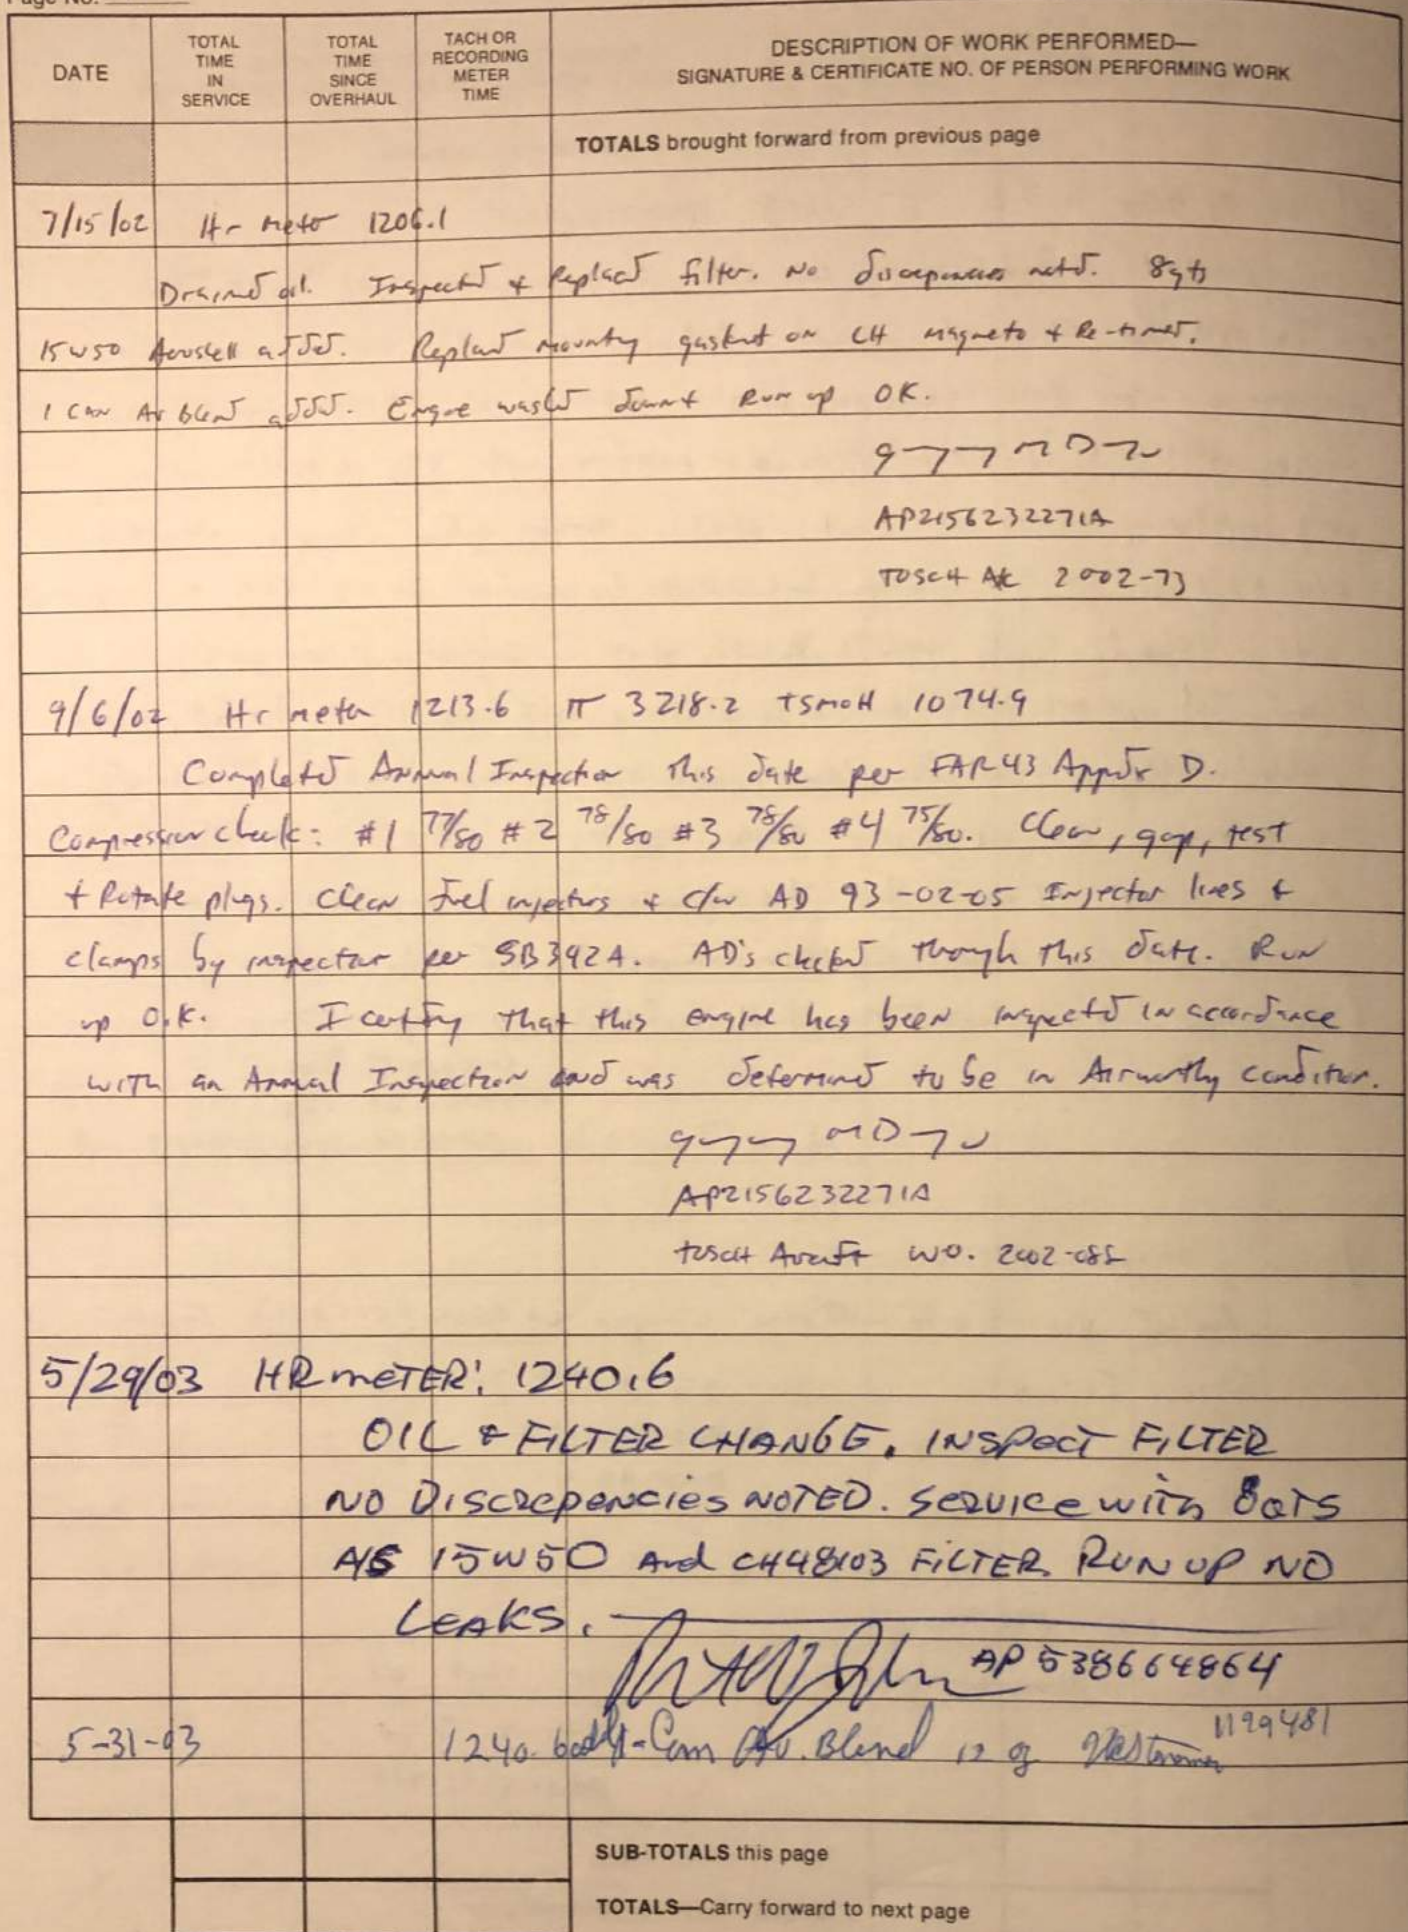 Page No.
DATE
TOTAL TIME IN SERVICE
TOTAL TIME SINCE OVERHAUL
TACH OR RECORDING METER TIME
DESCRIPTION OF WORK PERFORMED—
SIGNATURE & CERTIFICATE NO. OF PERSON PERFORMING WORK
TOTALS brought forward from previous page
7/15/02 Hr meter 1206.1
Drained oil. Inspected + Replaced filter. No discrepancies noted. 8qts
15w50 Aeroshell added. Replaced mounting gasket on LH magneto + Re-timed.
1 can Av Blend added. Engine washed down + Run up OK.
AP2156232271A
TOSCH A/C 2002-73
9/6/02 Hr meter 1213.6 TT 3218.2 TSMOH 1074.9
Completed Annual Inspection this date per FAR 43 Appdx D.
Compression check: #1 77/80 #2 78/80 #3 78/80 #4 75/80. Clean, gap, test
+ Rotate plugs. Clean fuel injectors + c/w AD 93-02-05 Injector lines +
clamps by inspection per SB342A. AD's checked through this date. Run
up O.K. I certify that this engine has been inspected in accordance
with an Annual Inspection and was determined to be in Airworthy condition.
AP2156232271A
TOSCH Aircraft WO. 2002-
5/29/03 HR METER: 1240.6
OIL & FILTER CHANGE. INSPECT FILTER
NO DISCREPENCIES NOTED. SERVICE WITH 8QTS
A/S 15W50 And CH48103 FILTER. RUN UP NO
LEAKS.
AP 538664864
5-31-03 1240.6 add 1-Can Av. Blend 12 oz 1199481
SUB-TOTALS this page
TOTALS—Carry forward to next page